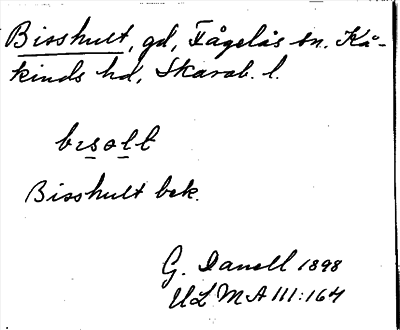 Bisshult, gd, Fågelås sn. Kå-
kinds hd, Skarab. l.
bɩsolt
Bisshult bek.
G. Danell 1898
ULMA 111:164